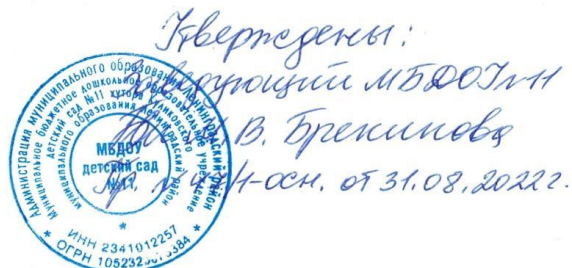 Утверждены:
Заведующий МБДОУ №11
В. Бренинова
Пр. -осн. от 31.08.2022г.
Администрация муниципального образования Ленинградский район
Муниципальное бюджетное дошкольное образовательное учреждение
детский сад №11 хутора Куликовского
муниципального образования Ленинградский район
МБДОУ
детский сад
№11
ИНН 2341012257
ОГРН